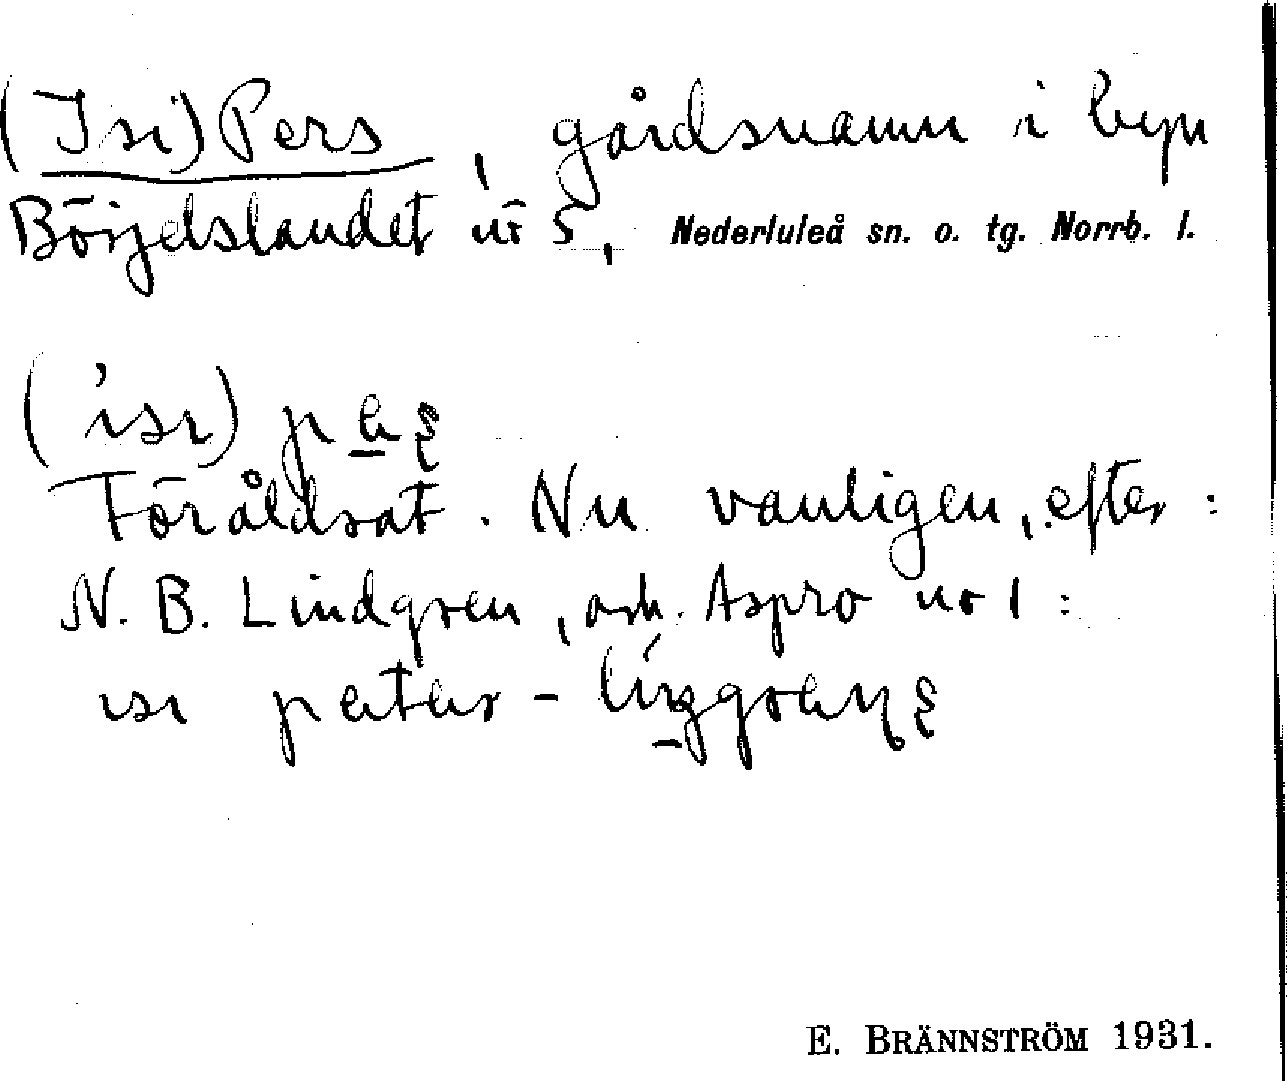 (Isi) Pers, gårdsnamn i byn
Börjelslandet nr 5, Nederluleå sn. o. tg. Norrb. l.
(isi)
Föråldrat. Nu vanligen, efter:
N. B. Lindgren, Aspro nr 1:
isi peter -
E. BRÄNNSTRÖM 1931.